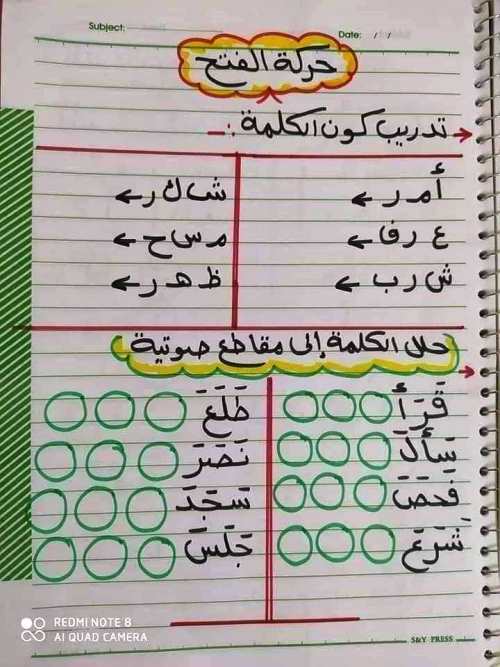 Subject:
Date: / /
حركة الفتح
تدريب كون الكلمة :-
أ م ر ←
ش ا ك ر ←
ع ر ف ا ←
م س ا ح ←
ش ر ب ←
ظ ه ر ←
حلل الكلمة إلى مقاطع صوتية
قَرَأَ
طَلَعَ
سَأَلَ
نَصَرَ
فَحَصَ
سَجَدَ
شَرَعَ
جَلَسَ
S&Y PRESS
REDMI NOTE 8
AI QUAD CAMERA